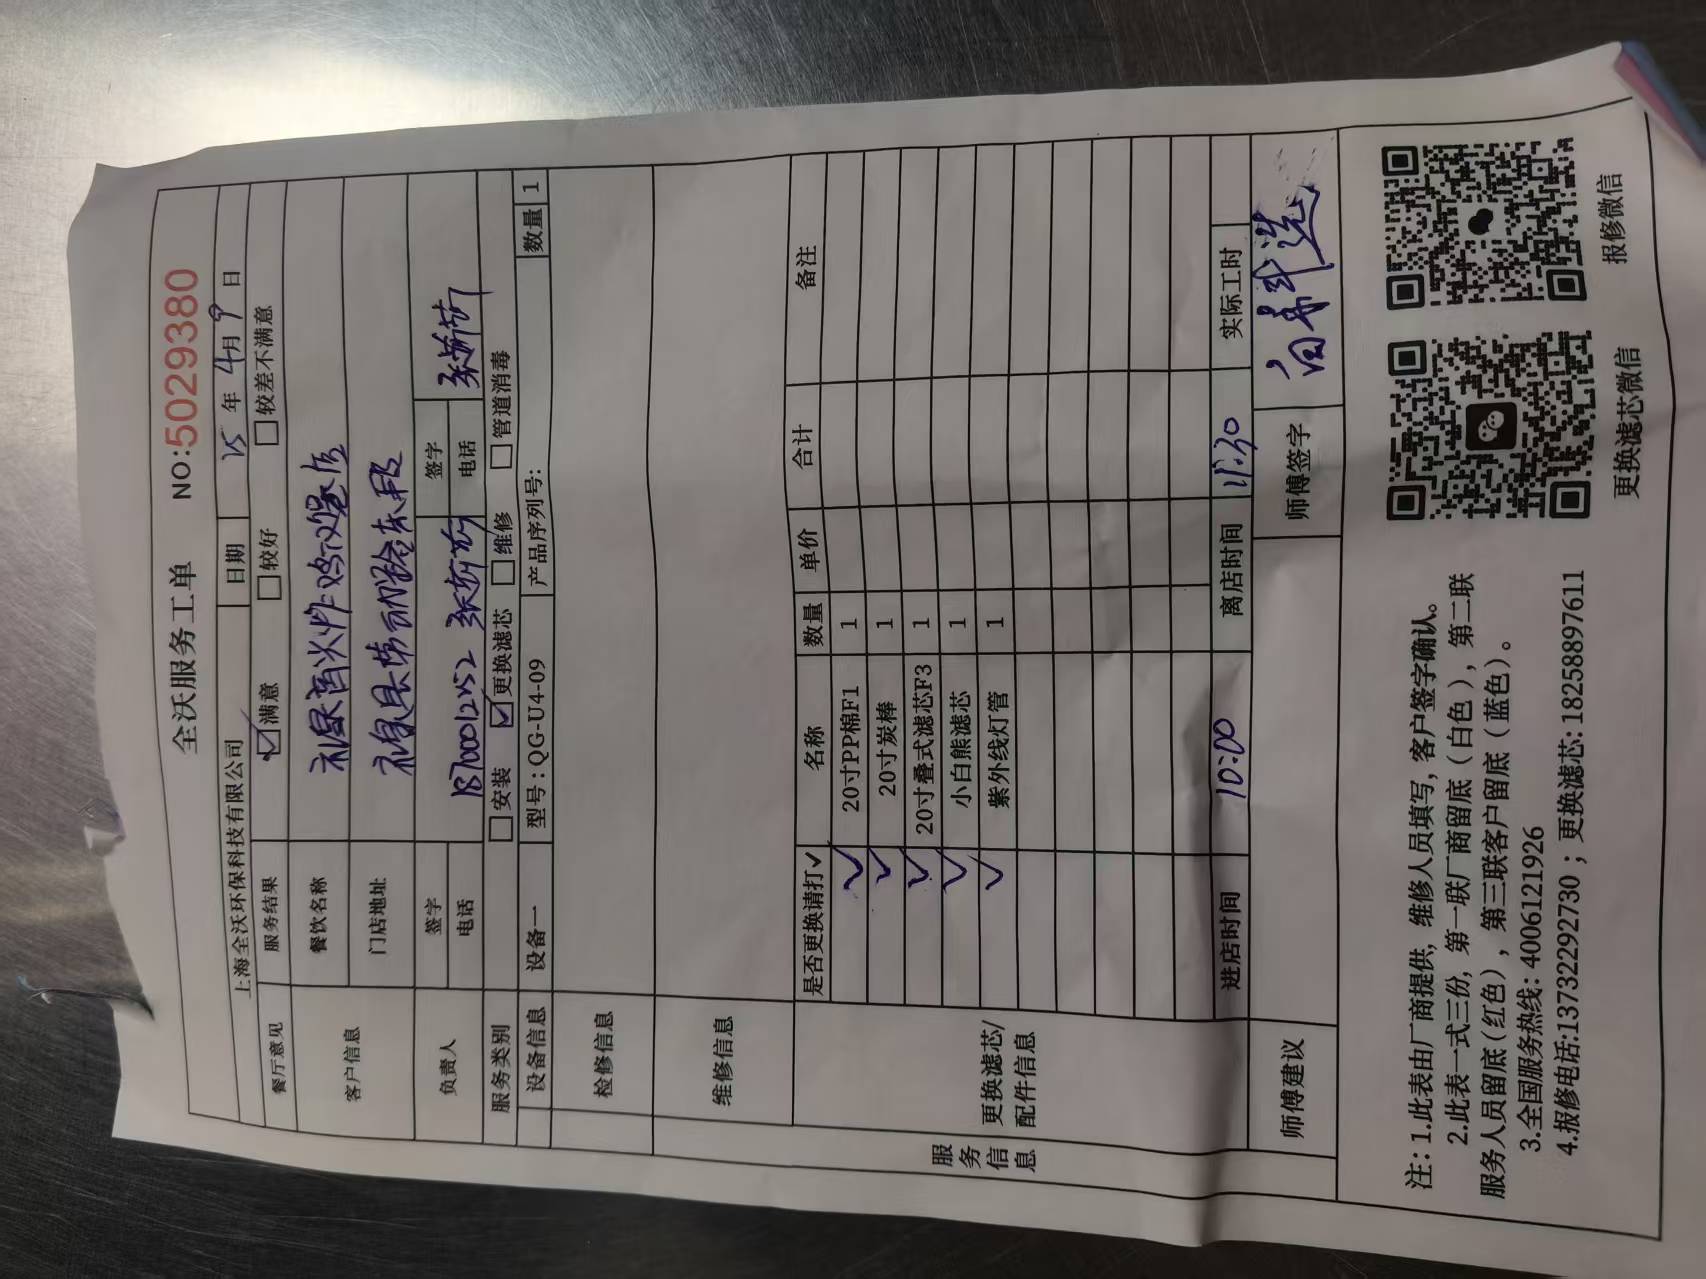 全沃服务工单 NO:5029380
上海全沃环保科技有限公司 日期 25年4月9日
餐厅意见 服务结果 ☑满意 □较好 □较差不满意
客户信息 餐饮名称
门店地址
负责人 签字 签字
电话 18700012152 电话
服务类别 □安装 ☑更换滤芯 □维修 □管道消毒
设备信息 设备一 型号:QG-U4-09 产品序列号: 数量 1
检修信息
维修信息
服务信息
更换滤芯/配件信息
是否更换请打✓ 名称 数量 单价 合计 备注
✓ 20寸PP棉F1 1
✓ 20寸炭棒 1
✓ 20寸叠式滤芯F3 1
✓ 小白熊滤芯 1
✓ 紫外线灯管 1
进店时间 10:00 离店时间 11:30 实际工时
师傅建议 师傅签字
注:1.此表由厂商提供,维修人员填写,客户签字确认。
2.此表一式三份,第一联厂商留底(白色),第二联
服务人员留底(红色),第三联客户留底(蓝色)。
3.全国服务热线:4006121926
4.报修电话:13732292730;更换滤芯:18258897611
更换滤芯微信 报修微信